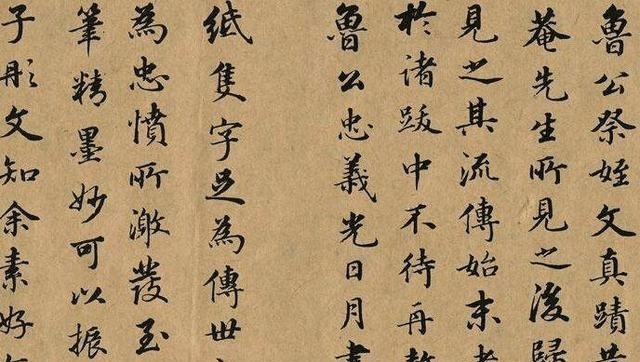 魯公祭姪文真蹟
菴先生所見之後歸
見之其流傳始末
於諸跋中不待再
魯公忠義光日月書
紙隻字足為傳世
為忠憤所激發至
筆精墨妙可以振
子彤文知余素好